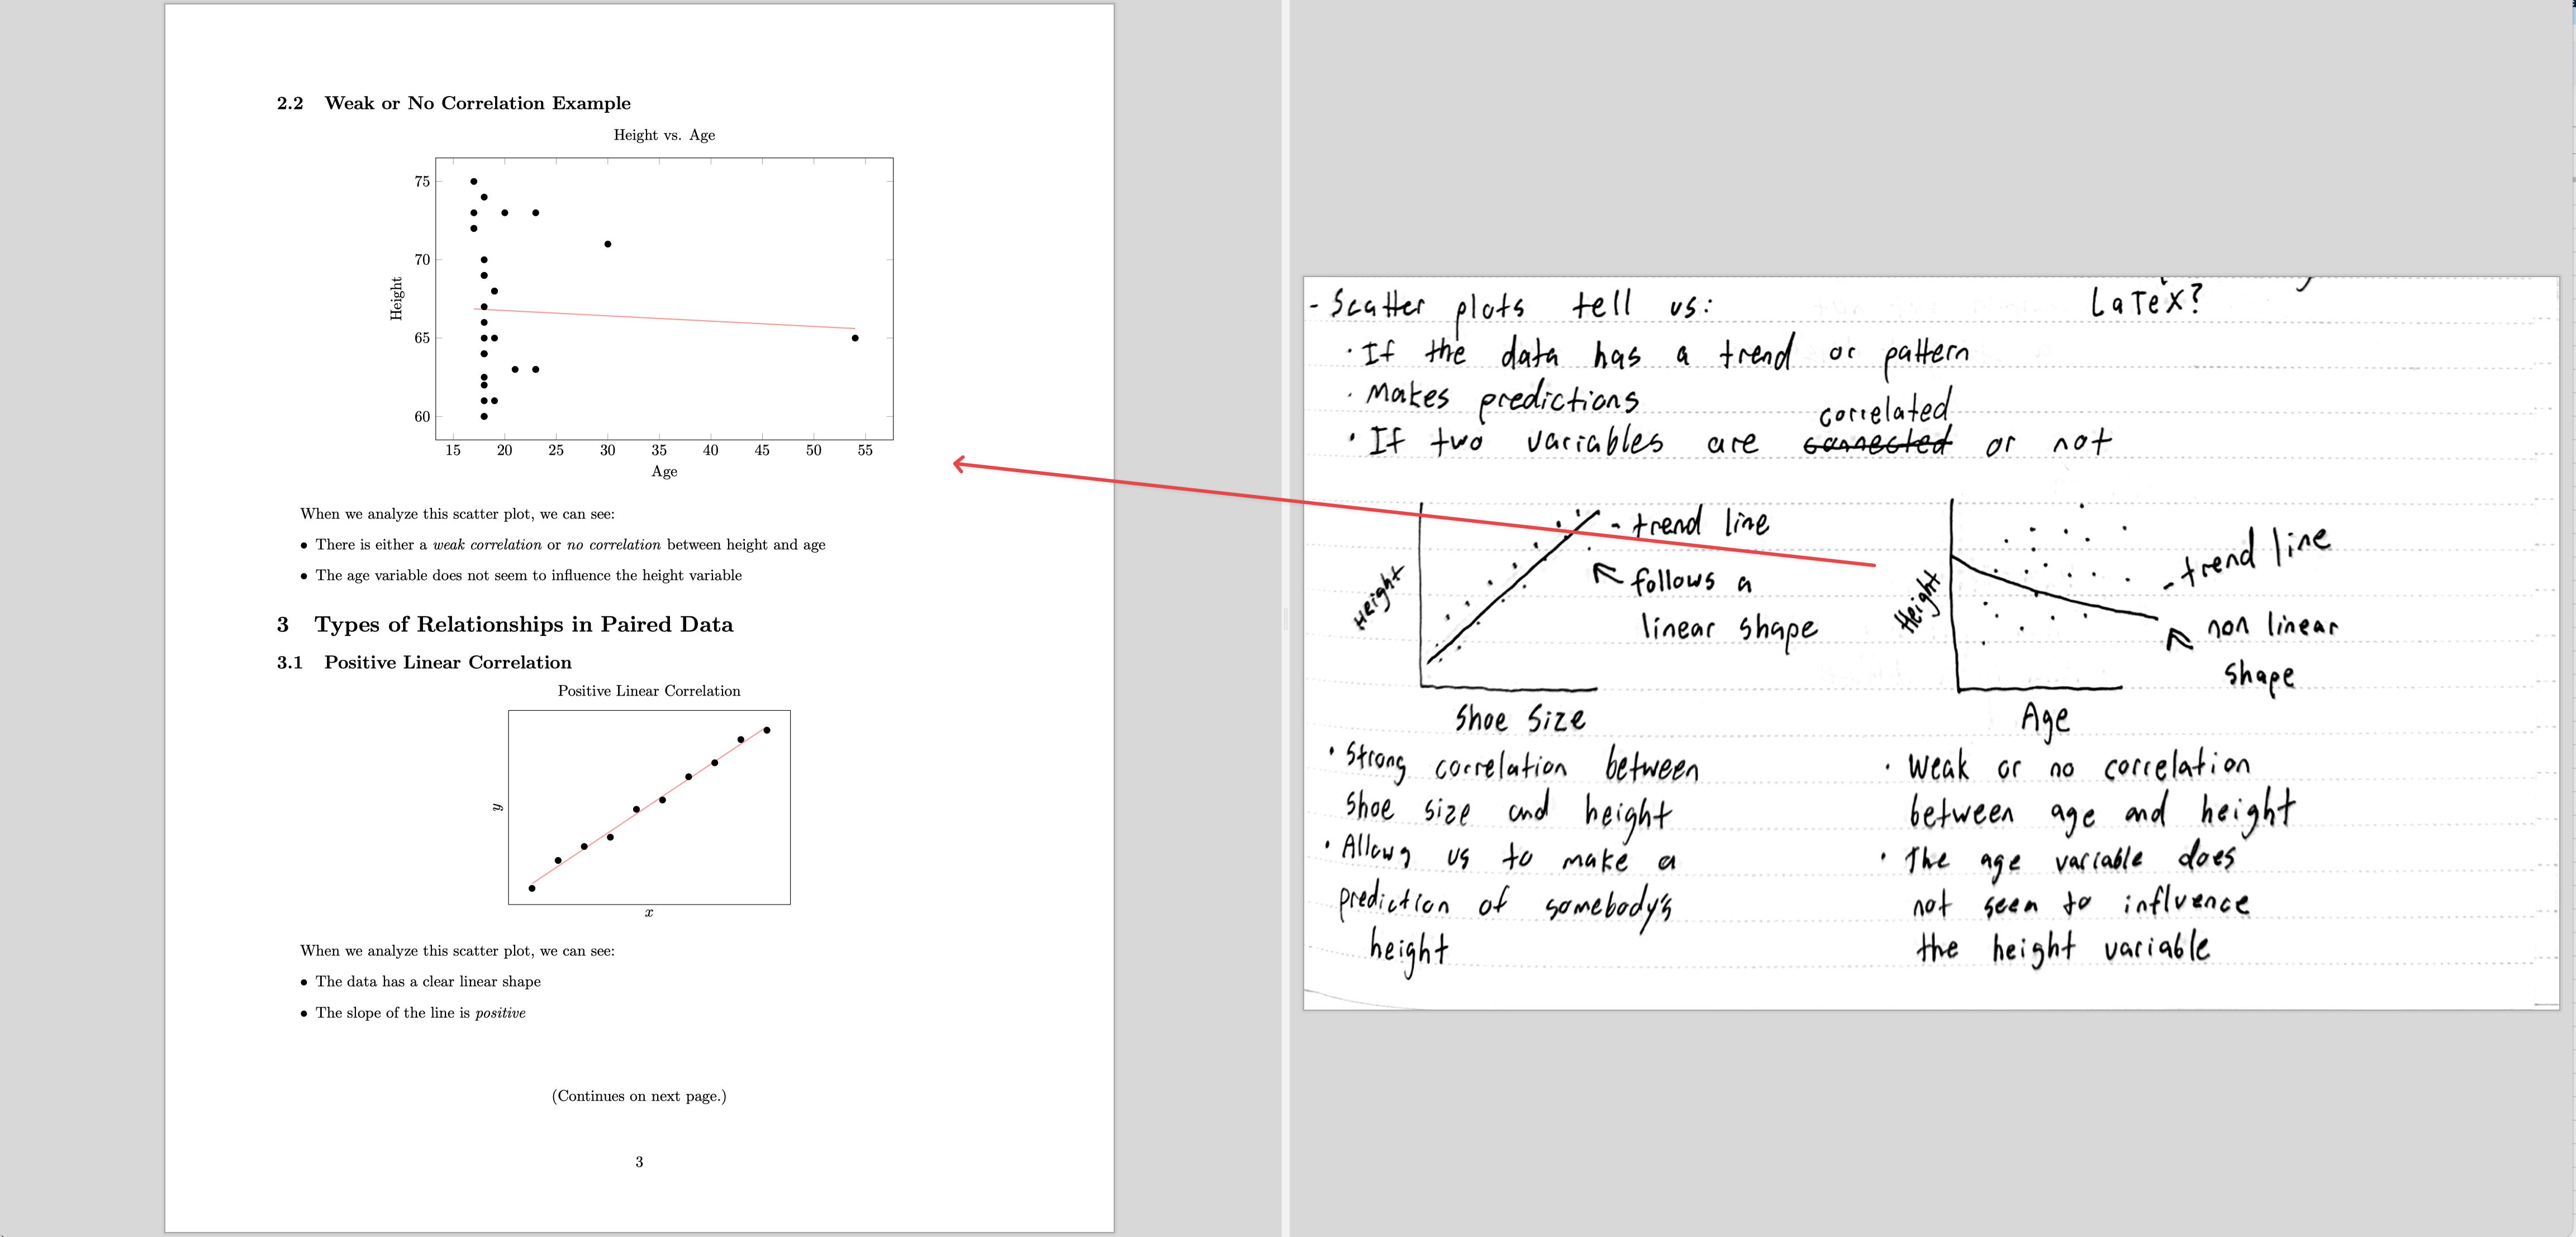 2.2 Weak or No Correlation Example
Height vs. Age
75
70
65
60
Height
15 20 25 30 35 40 45 50 55
Age
When we analyze this scatter plot, we can see:
• There is either a weak correlation or no correlation between height and age
• The age variable does not seem to influence the height variable
3 Types of Relationships in Paired Data
3.1 Positive Linear Correlation
Positive Linear Correlation
y
x
When we analyze this scatter plot, we can see:
• The data has a clear linear shape
• The slope of the line is positive
(Continues on next page.)
3
- Scatter plots tell us:
LaTeX?
· If the data has a trend or pattern
· Makes predictions
correlated
· If two variables are connected or not
Height
- trend line
follows a
linear shape
Shoe Size
Height
- trend line
non linear
shape
Age
· Strong correlation between
shoe size and height
· Allows us to make a
prediction of somebody's
height
· Weak or no correlation
between age and height
· The age variable does
not seem to influence
the height variable